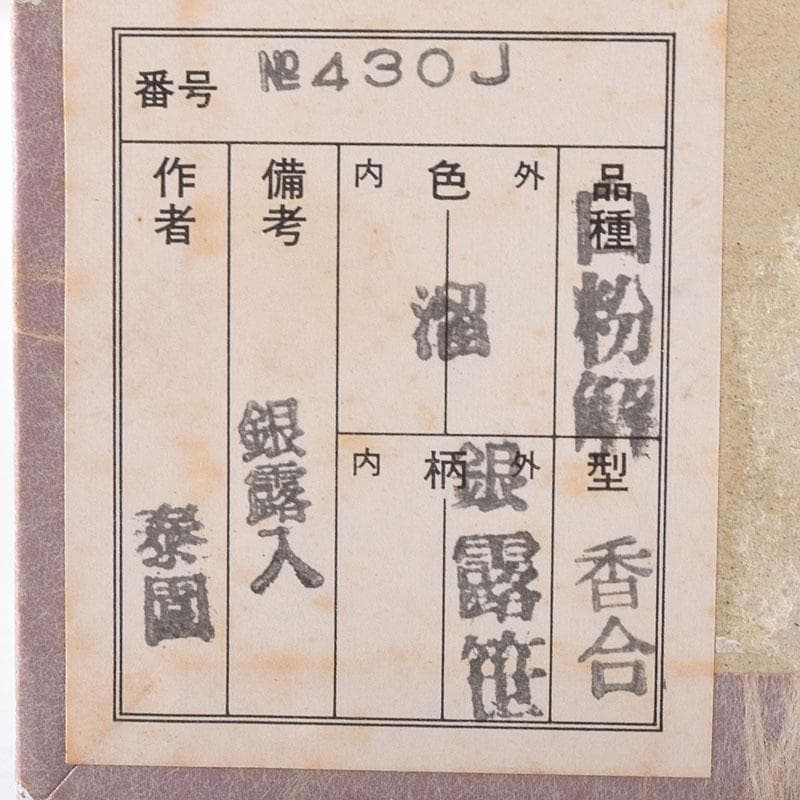 番号 № 430J
品種
白粉解
型
香合
外 色 内
溜
外 柄 内
銀露笹
備考
銀露入
作者
泰